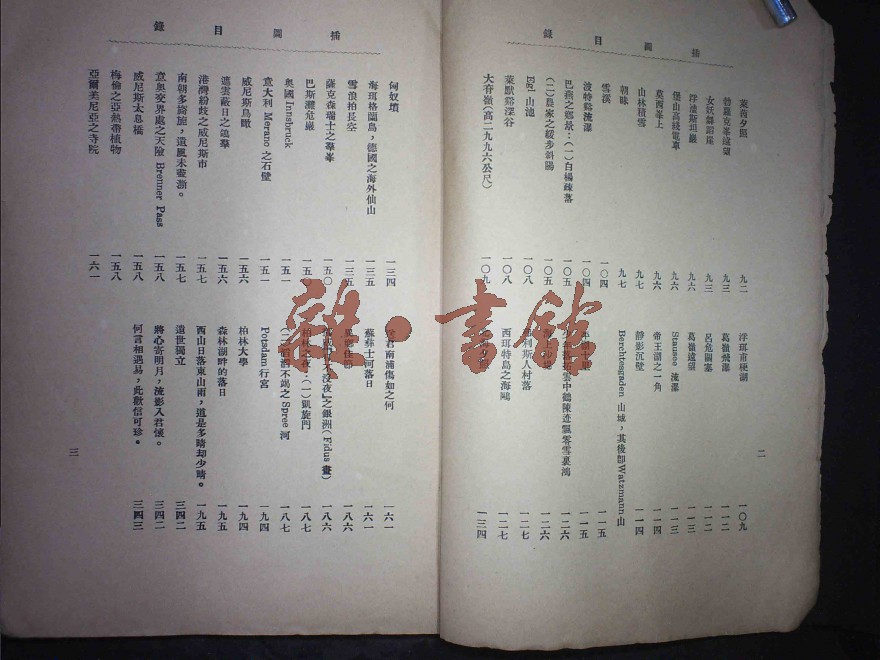 插圖目錄
萊茵夕照 九二
勃羅克峯遠望 九三
女妖舞蹈座 九三
浮達斯坦巖 九六
堡山高綫電車 九六
莫西峯上 九六
山林積雪 九七
朝暾 九七
雪溪 一〇四
波特谿流瀑 一〇四
巴燕之鄉景:(一)白楊疎落 一〇五
(二)農家之緩步斜陽 一〇五
Eel 山池 一〇八
萊默谿深谷 一〇八
大脊嶺(高二九九六公尺) 一〇九
浮珥甫梗湖 一〇九
葛嶺飛瀑 一一二
呂危圖塞 一一二
葛嶺遠望 一一三
Stausee 流瀑 一一三
帝王湖之一角 一一四
靜影沉壁 一一四
Berchtesgaden 山城,其後卽Watzmann山 一一五
一一五
雲中鶴陳迹飄零雪裏鴻 一二六
一二六
利斯人村落 一二七
西珥特島之海鷗 一二七
海夕照 一三四
二
插圖目錄
匈奴墳 一三四
海珥格蘭島,德國之海外仙山 一三五
雪浪拍長空 一三五
薩克森瑞士之羣峯 一五〇
巴斯灘危巖 一五〇
奧國 Innsbruck 一五一
意大利 Merano 之石壁 一五一
威尼斯鳥瞰 一五六
遮雲蔽日之鴿羣 一五六
港灣紛歧之威尼斯市 一五七
南朝多綺麗,遺風未盡澌。 一五七
意奧交界處之天險 Brenner Pass 一五八
威尼斯太息橋 一五八
梅倫之亞熱帶植物 一五八
亞爾美尼亞之寺院 一六一
君南浦傷如之何 一六一
蘇彝士河落日 一六一
佳節 一八六
沒夜』之銀洲(Fidus 畫) 一八六
柏林之夜:(一)凱旋門 一八七
(二)滔滔不竭之 Spree 河 一八七
Potsdam 行宮 一九四
柏林大學 一九四
森林湖畔的落日 一九五
西山日落東山雨,道是多晴却少晴。 一九五
遺世獨立 三四二
將心寄明月,流影入君懷。 三四二
何言相遇易,此歡信可珍。 三四三
三
雜·書館